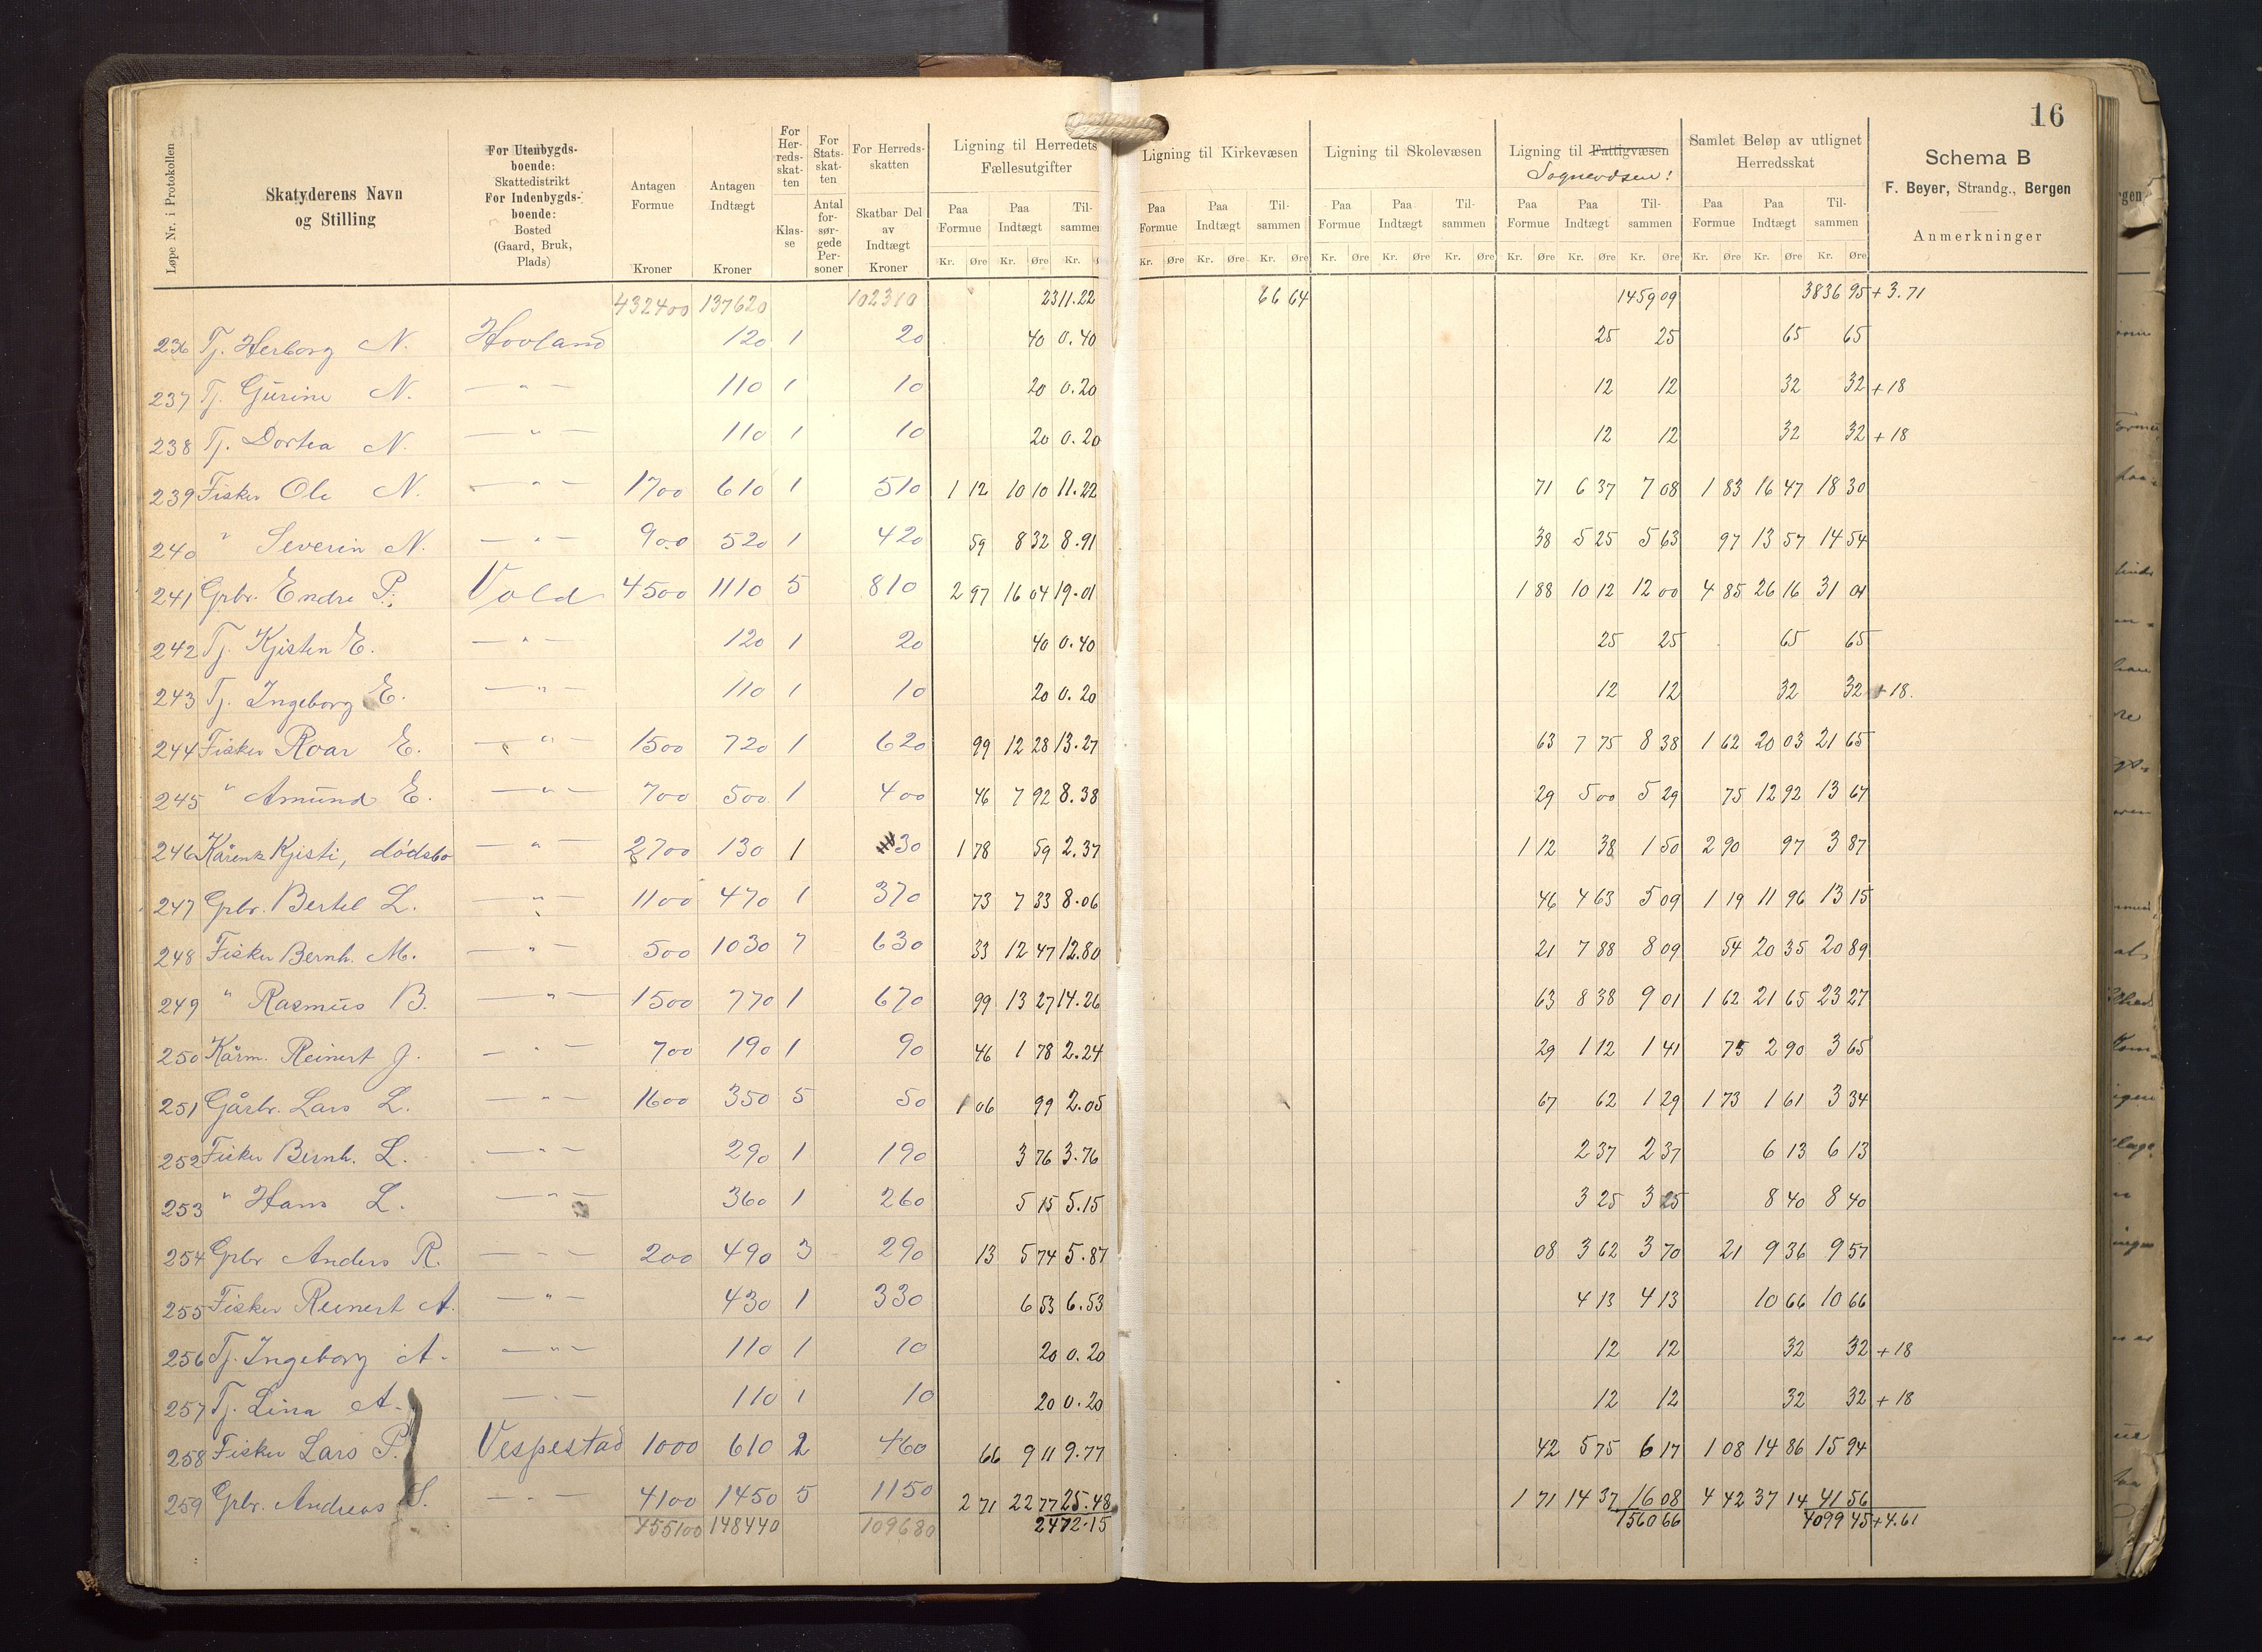 16
Løpe Nr. i Protokollen
Skatyderens Navn og Stilling
For Utenbygds-boende: Skattedistrikt For Indenbygds-boende: Bosted (Gaard, Bruk, Plads)
Antagen Formue Kroner
Antagen Indtægt Kroner
For Her-reds-skat-ten Klas-se
For Stats-skat-ten Antal for-sør-gede Per-soner
For Herreds-skatten Skatbar Del av Indtægt Kroner
Ligning til Herredets Fællesutgifter
Paa Formue Paa Indtægt Til-sammen
Kr. Øre Kr. Øre Kr.
Ligning til Kirkevæsen
Paa Formue Paa Indtægt Til-sammen
Kr. Øre Kr. Øre Kr. Øre
Ligning til Skolevæsen
Paa Formue Paa Indtægt Til-sammen
Kr. Øre Kr. Øre Kr. Øre
Ligning til Fattigvæsen
Paa Formue Paa Indtægt Til-sammen
Kr. Øre Kr. Øre Kr. Øre
Samlet Beløp av utlignet Herredsskat
Paa Formue Paa Indtægt Til-sammen
Kr. Øre Kr. Øre Kr. Øre
Schema B
F. Beyer, Strandg., Bergen
Anmerkninger
432400 137620 102310 2311.22 66 64 1459 09 3836 95 + 3.71
236 Tj. Herborg N. Hovland 120 1 20 40 0.40 25 25 65 65
237 Tj. Gurine N. — " — 110 1 10 20 0.20 12 12 32 32 + 18
238 Tj. Dortea N. — " — 110 1 10 20 0.20 12 12 32 32 + 18
239 Fisker Ole N. — " — 1700 610 1 510 1 12 10 10 11.22 71 6 37 7 08 1 83 16 47 18 30
240 " Severin N. — " — 900 520 1 420 59 8 32 8.91 38 5 25 5 63 97 13 57 14 54
241 Gpbr. Endre P. Vold 4500 1110 5 810 2 97 16 04 19.01 1 88 10 12 12 00 4 85 26 16 31 01
242 Tj. Kjisten E. — " — 120 1 20 40 0.40 25 25 65 65
243 Tj. Ingeborg E. — " — 110 1 10 20 0.20 12 12 32 32 + 18.
244 Fisker Roar E. — " — 1500 720 1 620 99 12 28 13.27 63 7 75 8 38 1 62 20 03 21 65
245 " Amund E. — " — 700 500 1 400 46 7 92 8.38 29 5 00 5 29 75 12 92 13 67
246 Kjisti, dødsbo — " — 2700 130 1 30 1 78 59 2.37 1 12 38 1 50 2 90 97 3 87
247 Gpbr. Bertel L. — " — 1100 470 1 370 73 7 33 8.06 46 4 63 5 09 1 19 11 96 13 15
248 Fisker Bernh. M. — " — 500 1030 7 630 33 12 47 12.80 21 7 88 8 09 54 20 35 20 89
249 " Rasmus B. — " — 1500 770 1 670 99 13 27 14.26 63 8 38 9 01 1 62 21 65 23 27
250 Kårm. Reinert J. — " — 700 190 1 90 46 1 78 2.24 29 1 12 1 41 75 2 90 3 65
251 Gårbr. Lars L. — " — 1600 350 5 50 1 06 99 2.05 67 62 1 29 1 73 1 61 3 34
252 Fisker Bernh. L. — " — 290 1 190 3 76 3.76 2 37 2 37 6 13 6 13
253 " Hans L. — " — 360 1 260 5 15 5.15 3 25 3 25 8 40 8 40
254 Gpbr Anders R. — " — 200 490 3 290 13 5 74 5.87 08 3 62 3 70 21 9 36 9 57
255 Fisker Reinert A. — " — 430 1 330 6 53 6.53 4 13 4 13 10 66 10 66
256 Tj. Ingeborg A. — " — 110 1 10 20 0.20 12 12 32 32 + 18
257 Tj. Lina A. — " — 110 1 10 20 0.20 12 12 32 32 + 18
258 Fisker Lars P. Vespestad 1000 610 2 460 66 9 11 9.77 42 5 75 6 17 1 08 14 86 15 94
259 Gpbr. Andreas S. — " — 4100 1450 5 1150 2 71 22 77 25.48 1 71 14 37 16 08 4 42 37 14 41 56
455100 148440 109680 2472.15 1560 66 4099 45 + 4.61